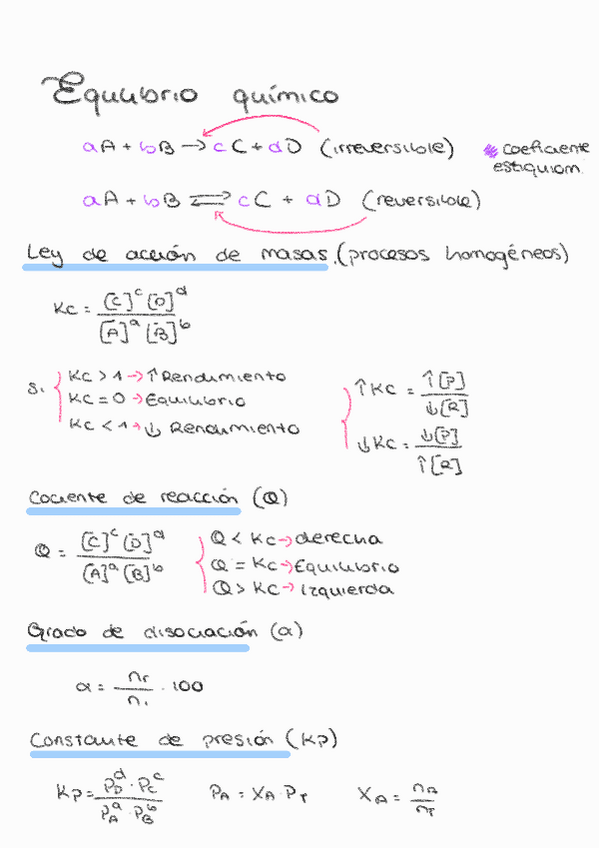 Equilibrio químico
aA + bB → cC + dD (irreversible) * coeficiente
estiquiom.
aA + bB ⇌ cC + dD (reversible)
Ley de acción de masas (procesos homogéneos)
Kc = [C]^c [D]^d / [A]^a [B]^b
Si Kc > 1 → ↑ Rendimiento
Kc = 0 → Equilibrio
Kc < 1 → ↓ Rendimiento
↑Kc = ↑[P] / ↓[R]
↓Kc = ↓[P] / ↑[R]
Cociente de reacción (Q)
Q = [C]^c [D]^d / [A]^a [B]^b
Q < Kc → derecha
Q = Kc → Equilibrio
Q > Kc → Izquierda
Grado de disociación (α)
α = nr / ni · 100
Constante de presión (Kp)
Kp = P_D^d · P_C^c / P_A^a · P_B^b
P_A = X_A · P_T
X_A = n_A / n_T